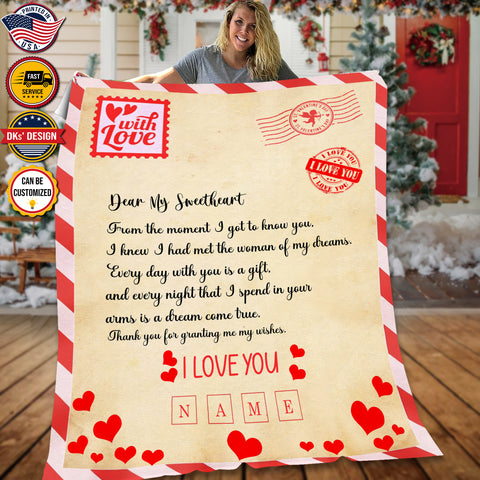 PRINTED IN
USA
FAST
SERVICE
DKs' DESIGN
CAN BE
CUSTOMIZED
with
Love
ST. VALENTINE'S DAY
ST. VALENTINE'S DAY
I LOVE YOU
I LOVE YOU
I LOVE YOU
Dear My Sweetheart
From the moment I got to know you,
I knew I had met the woman of my dreams.
Every day with you is a gift,
and every night that I spend in your
arms is a dream come true.
Thank you for granting me my wishes.
I LOVE YOU
NAME